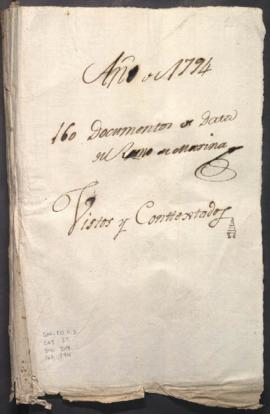 Año de 1794
160 Documentos de Data
del Ramo de Marina
Vistos y Contextados